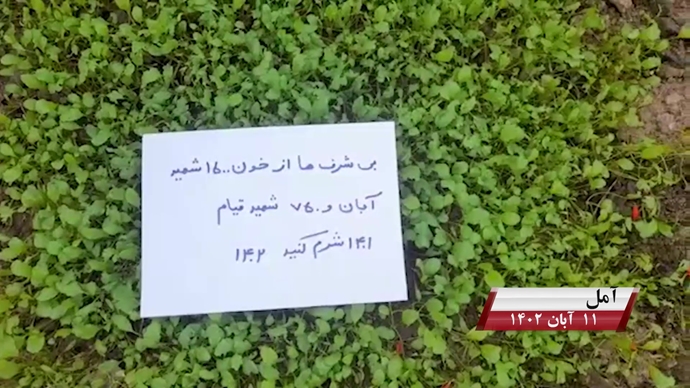 بی شرف ها از خون ۱۶۰۰ شهید
آبان و ۷۶۰ شهید قیام
۱۴۰۱ شرم کنید ۱۴۰۲
آمل
۱۱ آبان ۱۴۰۲